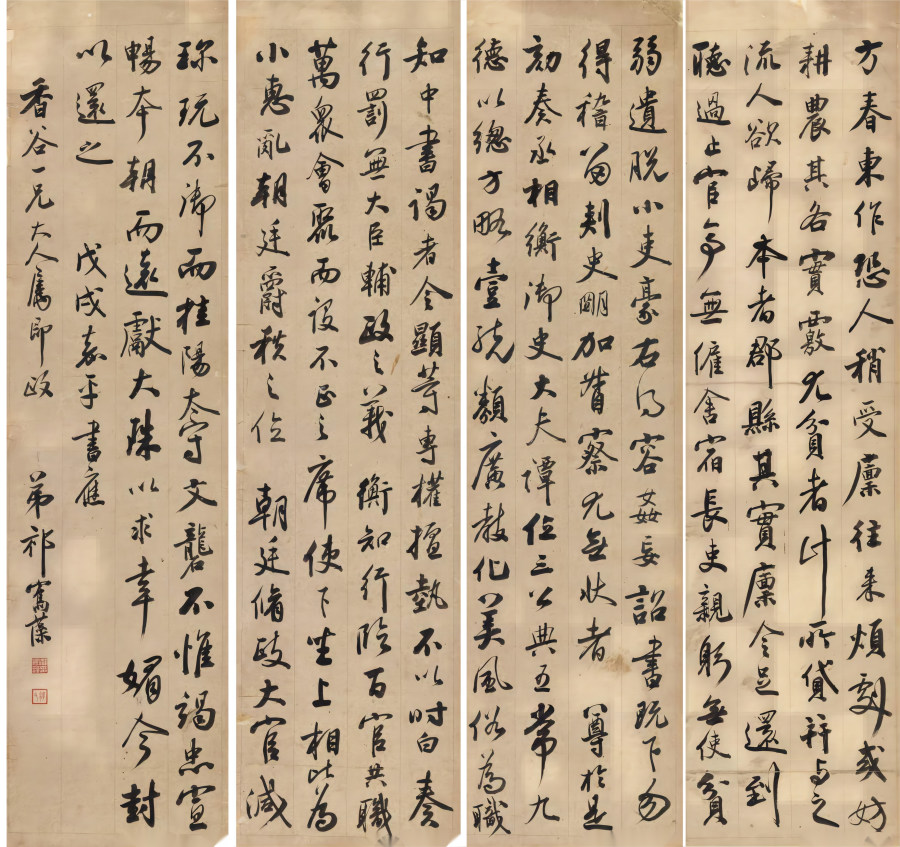 方春東作恐人稍受廩往来煩劇或妨
耕農其各實覈尤貧者計所貸并与之
流人欲歸本者郡縣其實廩令足還到
聽過止官亭無僱舍宿長吏親躬無使貧
弱遺脱小吏豪右得容姦妄詔書既下勿
得稽留刺史明加督察尤無状者 尊於是
劾奏丞相衡御史大夫譚位三公典五常九
德以總方略壹統類廣教化美風俗為職
知中書謁者令顯等専權擅勢不以時白奏
行罰無大臣輔政之義 衡知行臨百官共職
萬衆會聚而設不正之席使下坐上相比為
小惠亂朝廷爵秩之位 朝廷脩政大官減
珎玩不御而桂陽太守文礱不惟竭忠宣
暢本朝而遠獻大珠以求幸媚今封
以還之 戊戌嘉平書應
香谷一兄大人属即政 弟祁寯藻